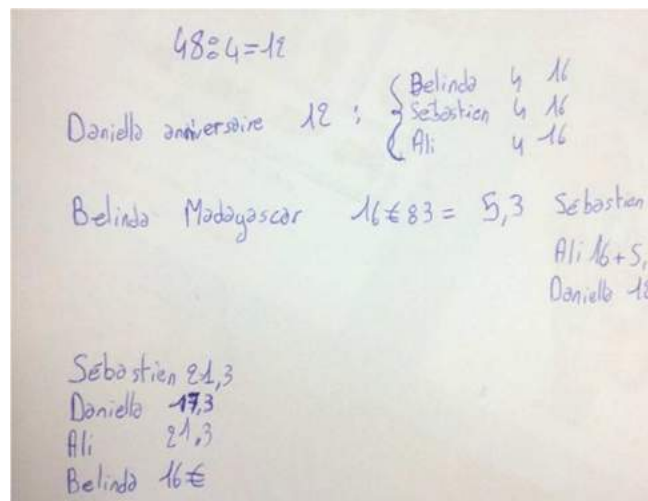 48:4=12
Belinda 4 16
Daniella anniversaire 12 : { Sébastien 4 16
Ali 4 16
Belinda Madagascar 16€ 83 = 5,3 Sébastien
Ali 16+5,
Daniella 12
Sébastien 21,3
Daniella 17,3
Ali 21,3
Belinda 16€